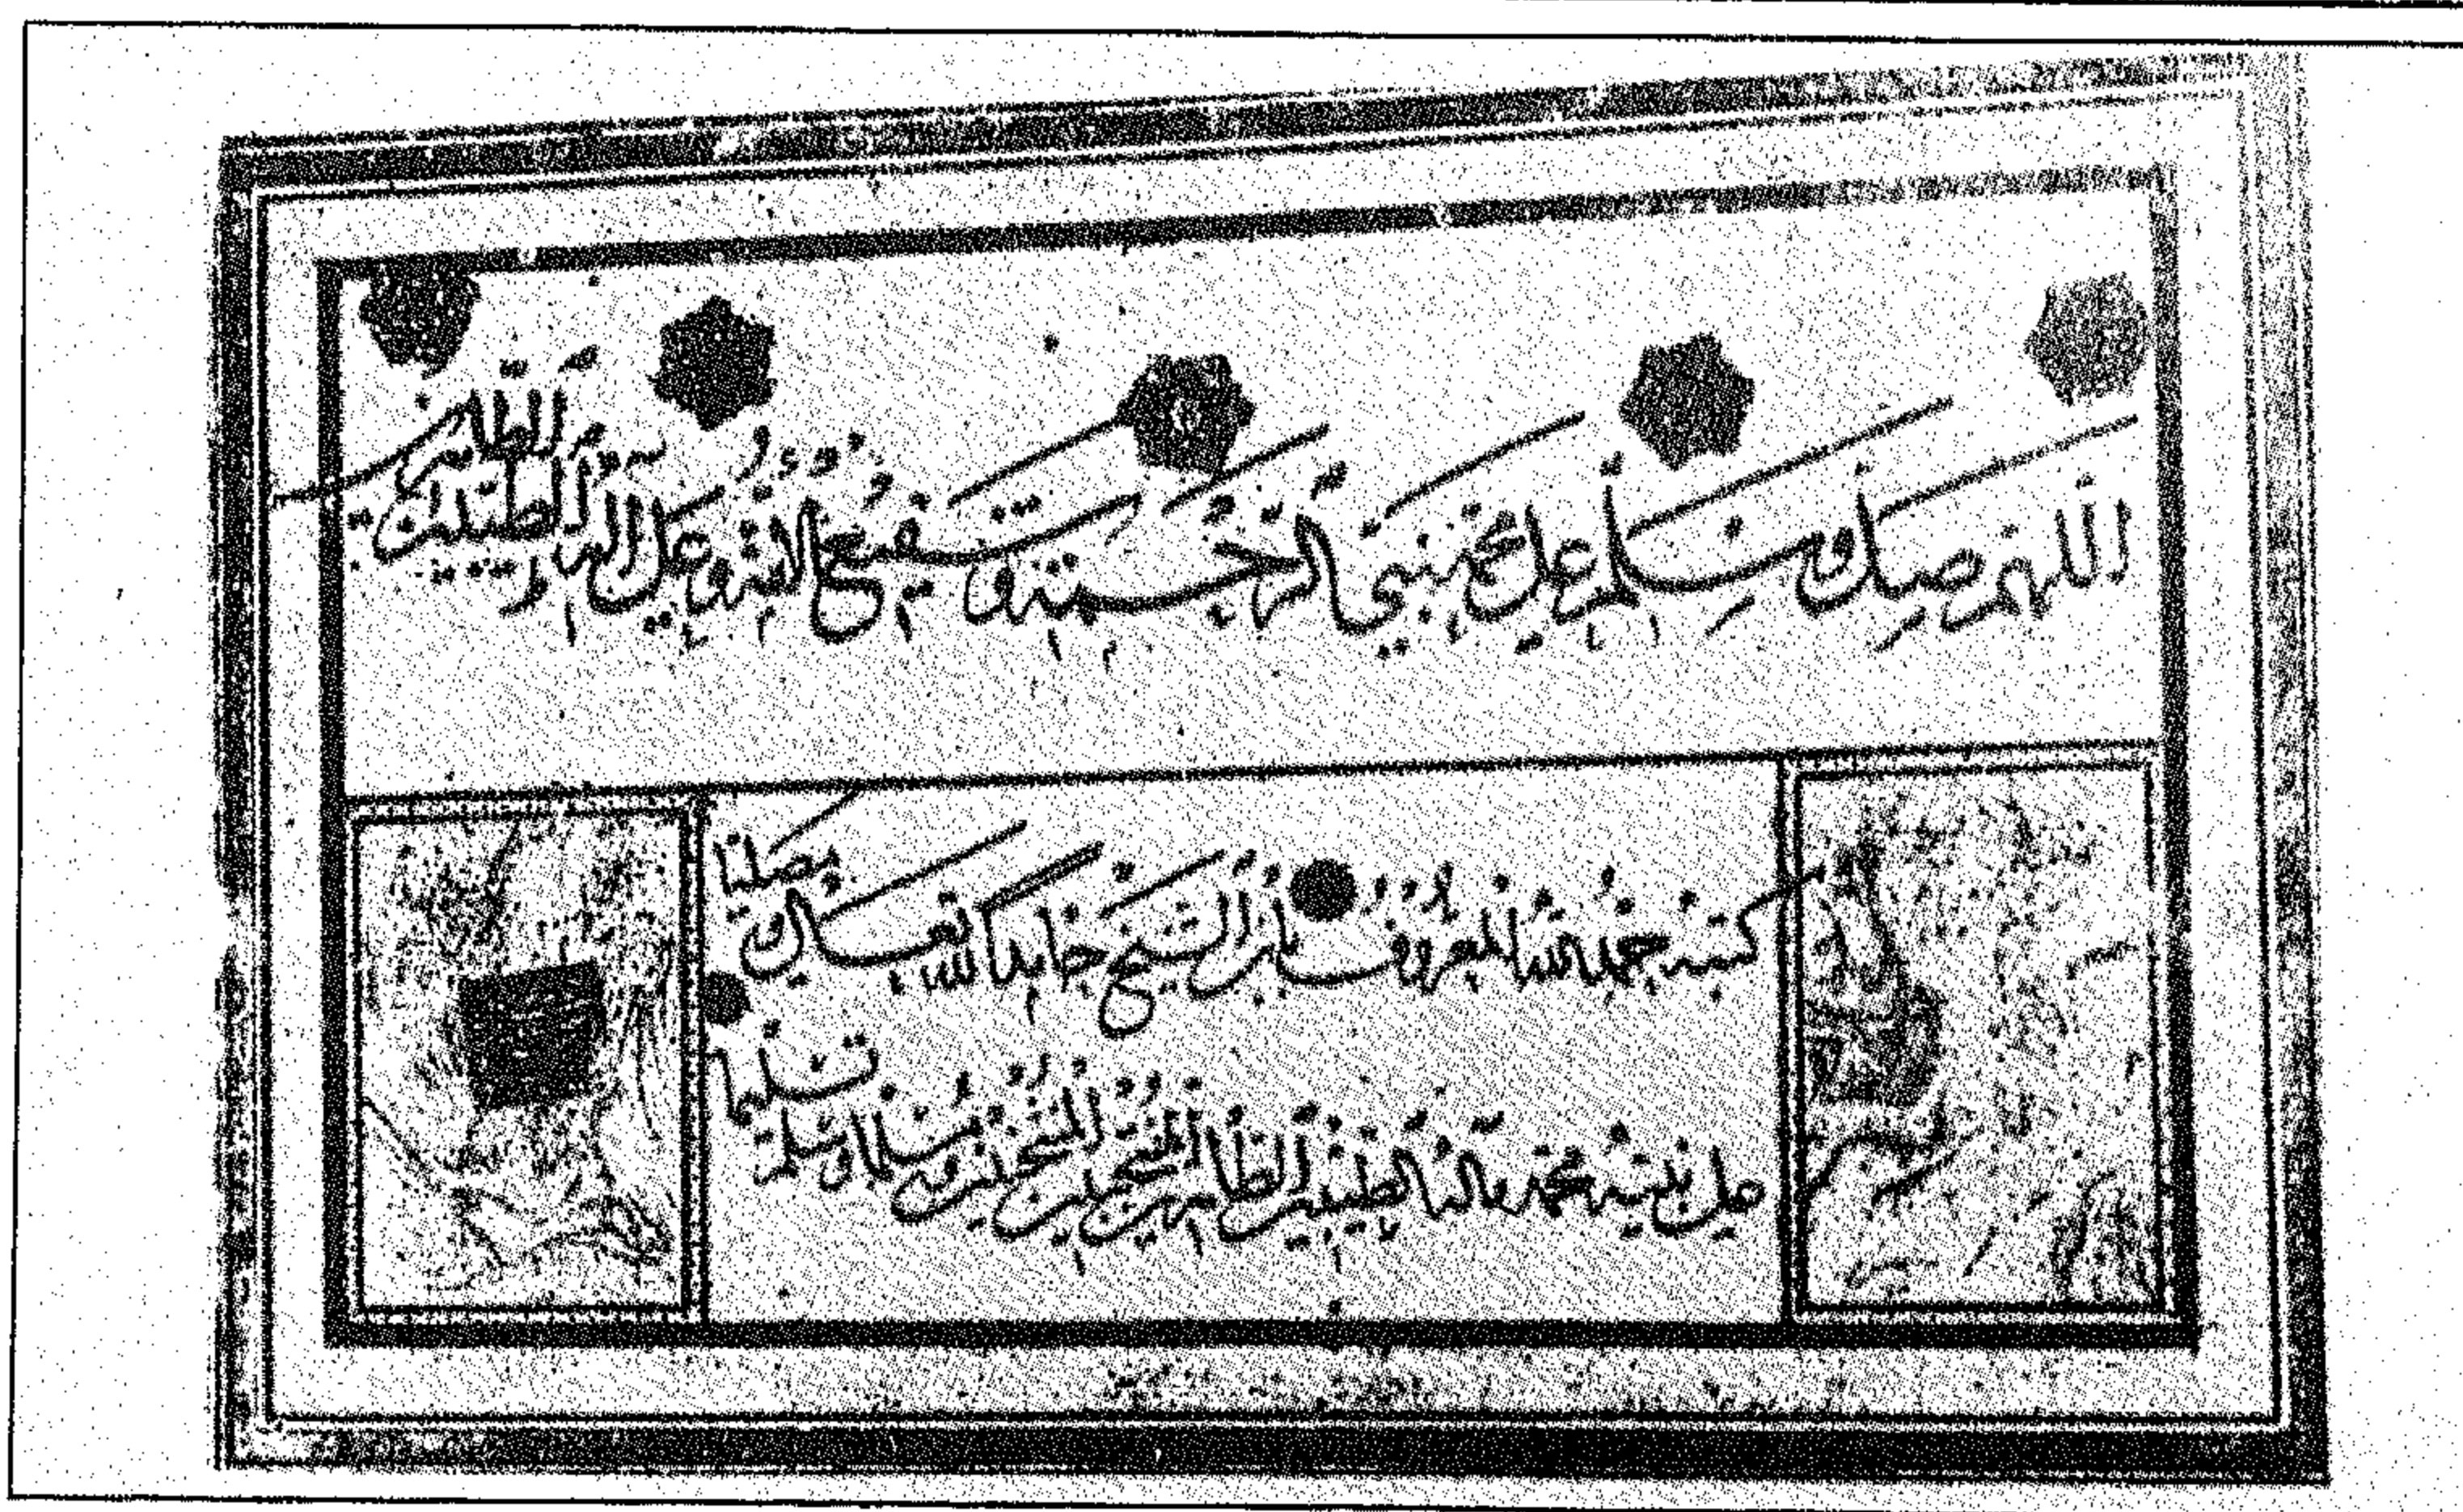 اللهم صل وسلم على محمد نبي الرحمة وشفيع الأمة وعلى آله الطيبين الطاهرين
كتبه حمد الله المعروف بابن الشيخ حامدا لله تعالى ومصليا
على نبيه محمد وآله الطيبين الطاهرين ومسلما وسلم تسليما